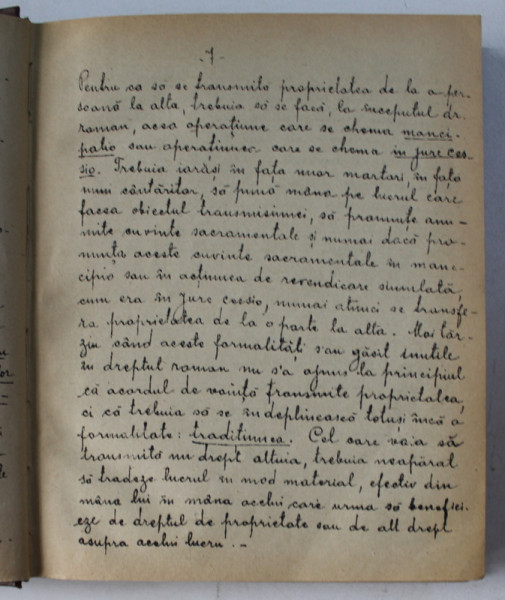 -7-
Pentru ca să se transmită proprietatea de la o per-
soană la alta, trebuia să se facă, la începutul dr.
roman, acea operațiune care se chema manci-
patio sau operațiunea care se chema in jure ces-
sio. Trebuia iarăși în fața unor martori, în fața
unui cântăritor, să pună mâna pe lucrul care
făcea obiectul transmisiunei, să pronunțe anu-
mite cuvinte sacramentale și numai dacă pro-
nunța aceste cuvinte sacramentale în man-
cipio sau în acțiunea de revendicare simulată,
cum era în jure cessio, numai atunci se transfe-
ra proprietatea de la o parte la alta. Mai târ-
ziu când aceste formalități s'au găsit inutile
în dreptul roman nu s'a ajuns la principiul
că acordul de voință transmite proprietatea,
ci că trebuia să se îndeplinească totuși încă o
formalitate: tradițiunea. Cel care voia să
transmită un drept altuia, trebuia neapărat
să tradeze lucrul în mod material, efectiv din
mâna lui în mâna acelui care urma să benefici-
eze de dreptul de proprietate sau de alt drept
asupra acelui lucru. -